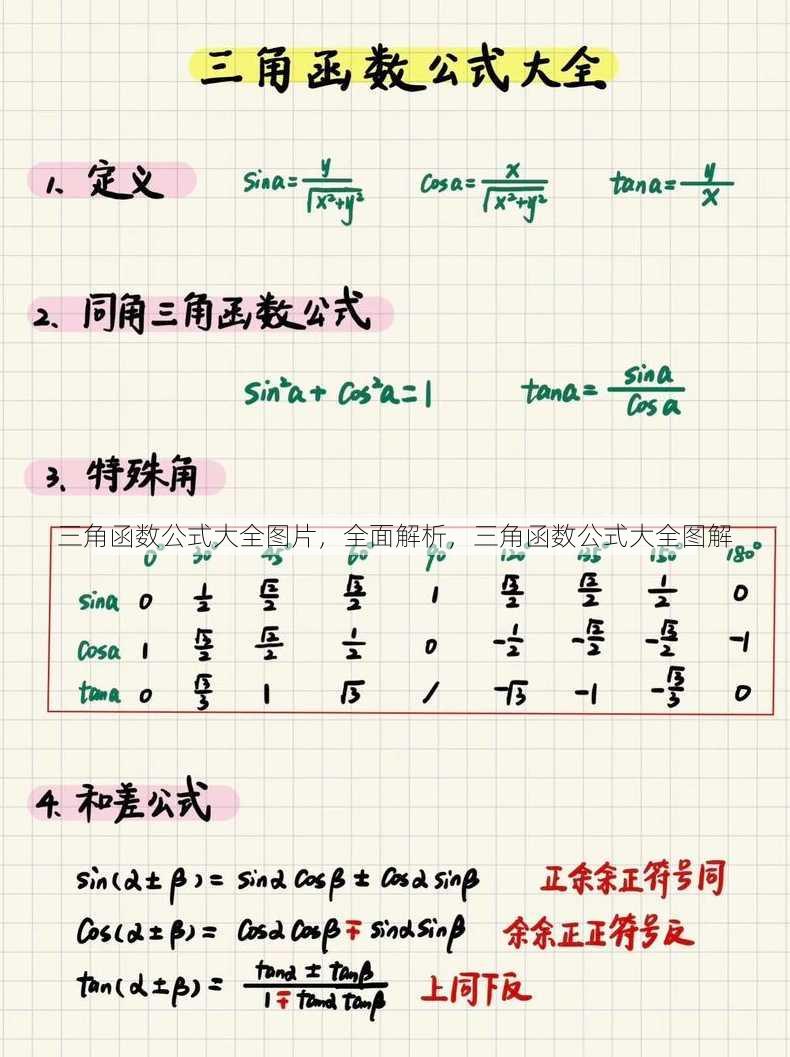 三角函数公式大全
1、定义 sina=y/√(x²+y²) cosa=x/√(x²+y²) tana=y/x
2、同角三角函数公式
sin²a+cos²a=1 tana=sina/cosa
3、特殊角
三角函数公式大全图片，全面解析，三角函数公式大全图解
0° 30° 45° 60° 90° 120° 135° 150° 180°
sina 0 1/2 √2/2 √3/2 1 √3/2 √2/2 1/2 0
cosa 1 √3/2 √2/2 1/2 0 -1/2 -√2/2 -√3/2 -1
tana 0 √3/3 1 √3 / -√3 -1 -√3/3 0
4、和差公式
sin(α±β)=sinαcosβ±cosαsinβ 正余余正符号同
cos(α±β)=cosαcosβ∓sinαsinβ 余余正正符号反
tan(α±β)=(tanα±tanβ)/(1∓tanαtanβ) 上同下反